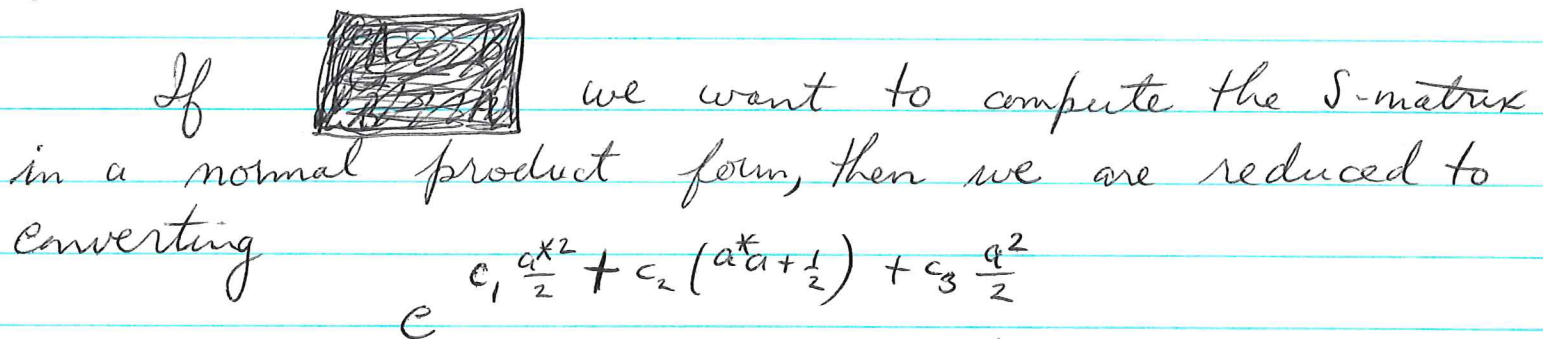 If we want to compute the S-matrix
in a normal product form, then we are reduced to
converting e^{c_1 \frac{a^{*2}}{2} + c_2 (a^*a + \frac{1}{2}) + c_3 \frac{a^2}{2}}